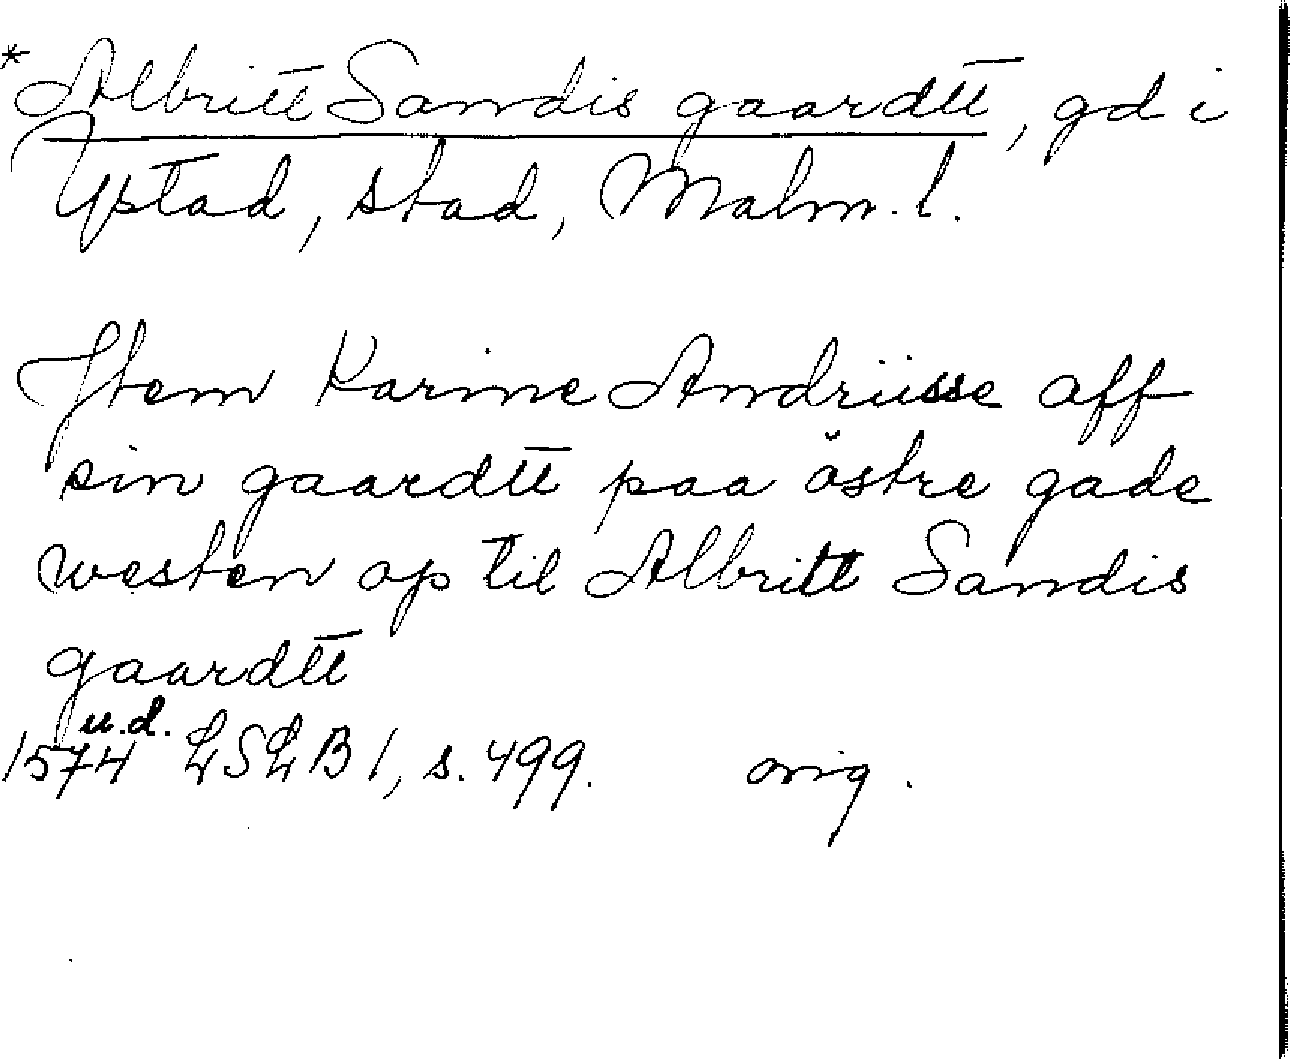 *Albritt Sandis gaardtt, gd i
Ystad, stad, Malm. l.
Item Karine Andriisse aff
sin gaardtt paa östre gade
westen op til Albritt Sandis
gaardtt
u.d.
1574 LSLB 1, s. 499. orig.